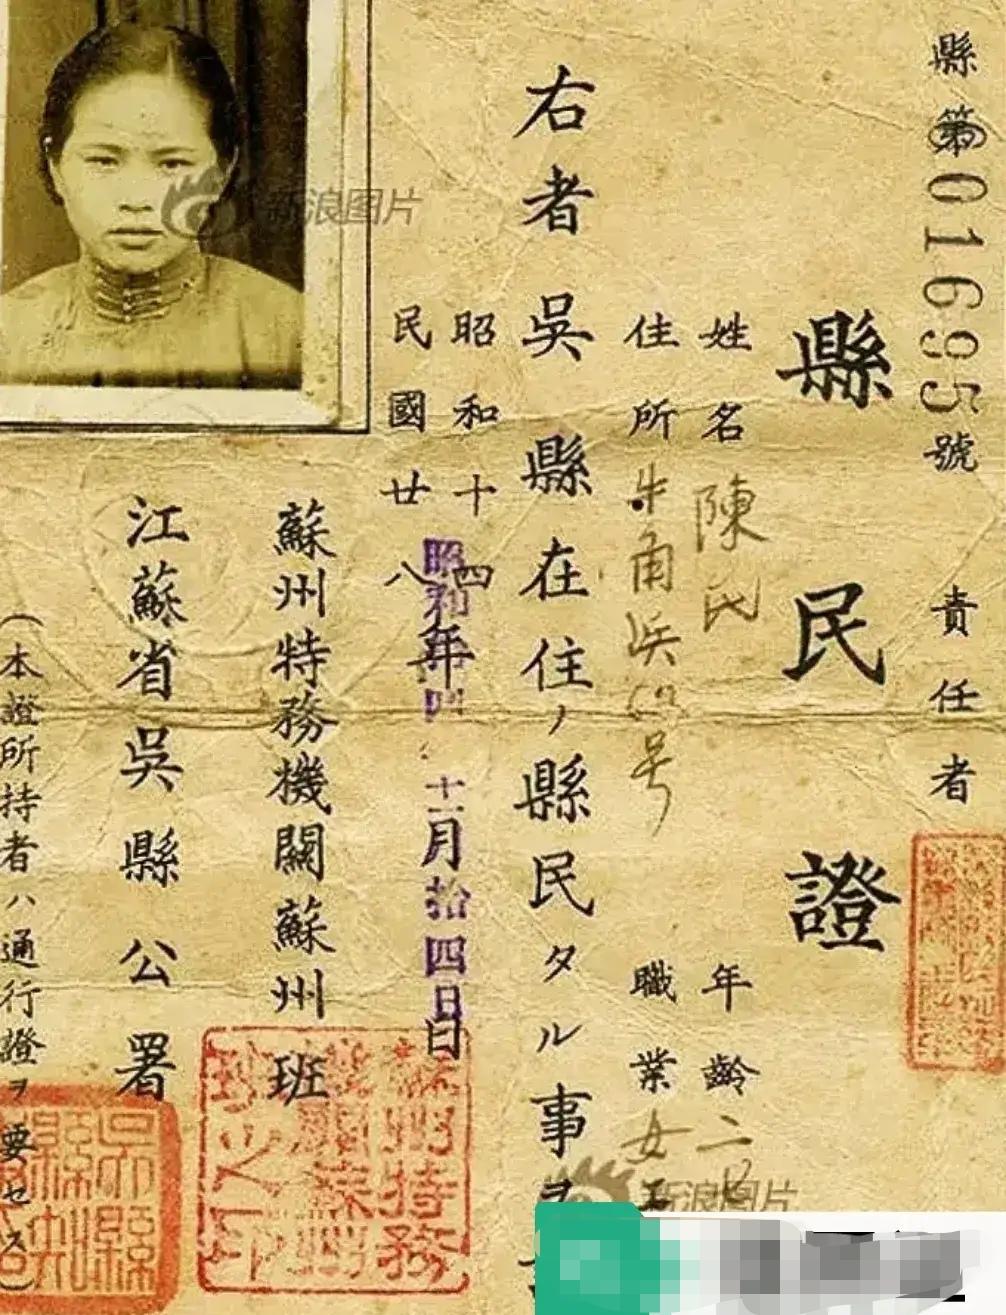 縣第016995號
責任者
縣民證
姓名 陳氏
年齡 二
住所
号
職業 女
右者吳縣在住ノ縣民タル事ヲ
昭和十四年
民國廿八年
昭和
十一月拾四日
蘇州特務機關蘇州班
江蘇省吳縣公署
(本證所持者ハ通行證ヲ要セス)
蘇州特務
吳縣
新浪图片
新浪图片